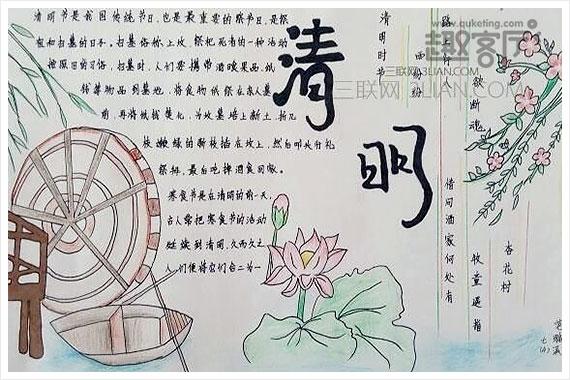 清明节是我国传统节日,也是最重要的祭节日,是祭
祖和扫墓的日子。扫墓俗称上坟,祭祀死者的一种活动
按照旧的习俗,扫墓时,人们要携带酒食果品,纸
钱等物品到墓地,将食物供祭在亲人墓
前,再将纸钱焚化,为坟墓培上新土,折几
枝嫩绿的新枝插在坟上,然后叩头行礼
祭拜,最后吃掉酒食回家。
寒食节是在清明的前一天,
古人常把寒食节的活动
延续到清明,久而久之
人们便将它们合二为一
清明
清明时节
雨纷纷
路上行人
欲断魂
借问酒家何处有
牧童遥指
杏花村
www.quketing.com
趣客厅
三联网3LIAN.COM
三联网3LIAN.COM